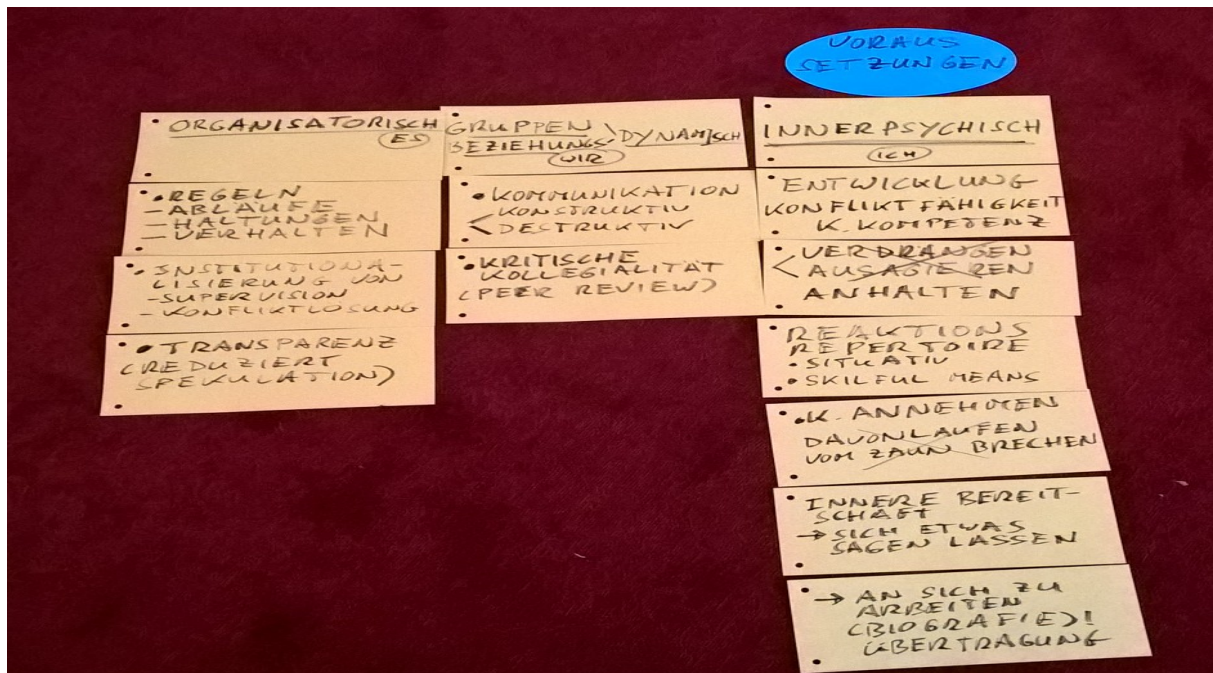 VORAUS
SETZUNGEN
ORGANISATORISCH
ES
• REGELN
– ABLÄUFE
– HALTUNGEN
– VERHALTEN
• INSTITUTIONA-
LISIERUNG VON
- SUPERVISION
- KONFLIKTLÖSUNG
• TRANSPARENZ
(REDUZIERT
SPEKULATION)
GRUPPEN
BEZIEHUNGS- DYNAMISCH
WIR
• KOMMUNIKATION
< KONSTRUKTIV
DESTRUKTIV
• KRITISCHE
KOLLEGIALITÄT
(PEER REVIEW)
INNERPSYCHISCH
ICH
ENTWICKLUNG
KONFLIKTFÄHIGKEIT
K. KOMPETENZ
< VERDRÄNGEN
AUSAGIEREN
ANHALTEN
• REAKTIONS
REPERTOIRE
• SITUATIV
• SKILFUL MEANS
• K. ANNEHMEN
DAVONLAUFEN
VOM ZAUN BRECHEN
INNERE BEREIT-
SCHAFT
→ SICH ETWAS
SAGEN LASSEN
→ AN SICH ZU
ARBEITEN
(BIOGRAFIE)!
ÜBERTRAGUNG